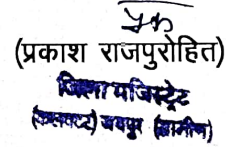 (प्रकाश राजपुरोहित)
जिला मजिस्ट्रेट
(कलक्टर) जयपुर (ग्रामीण)